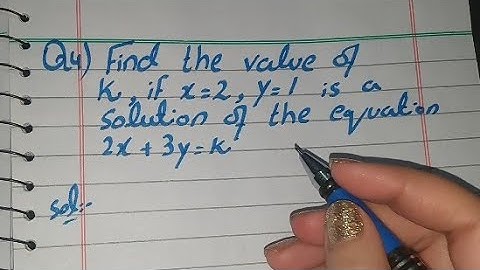 Q4) Find the value of
k, if x=2, y=1 is a
solution of the equation
2x + 3y = k
sol:-